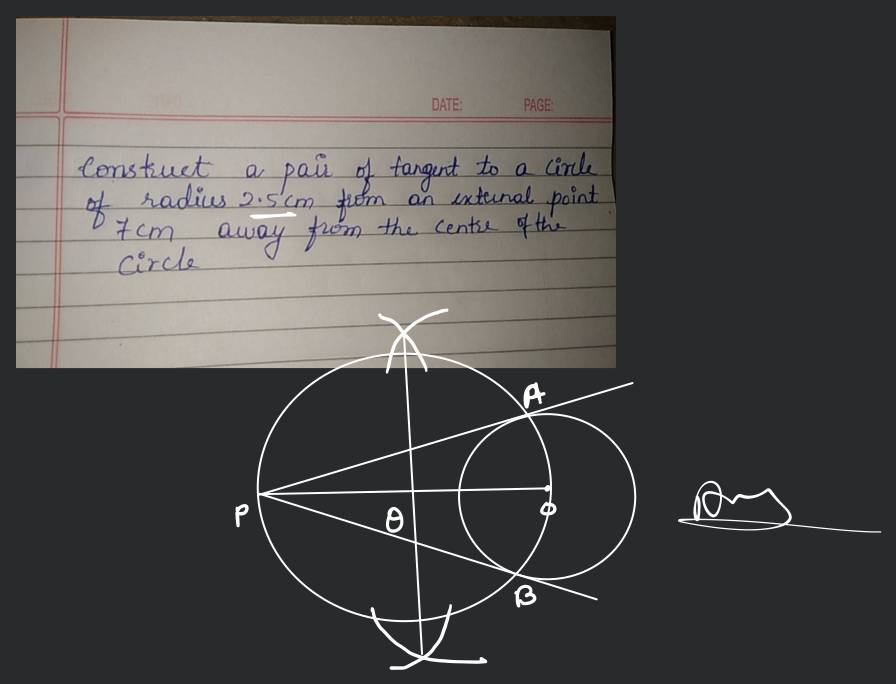 DATE: PAGE:
Construct a pair of tangent to a circle
of radius 2.5cm from an external point
7cm away from the centre of the
Circle
A
P
θ
O
B